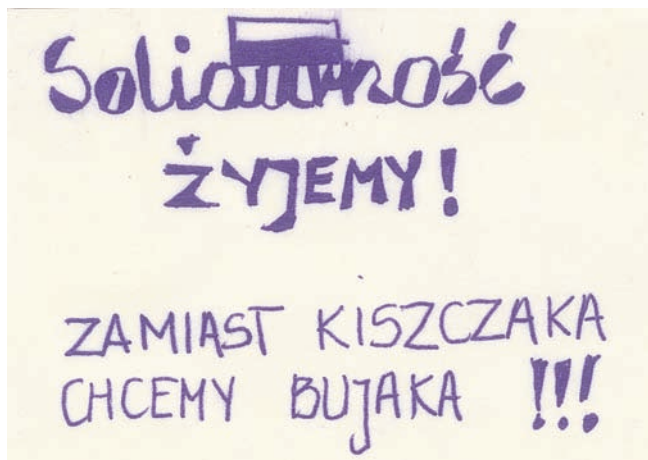 Solidarność
ŻYJEMY!
ZAMIAST KISZCZAKA
CHCEMY BUJAKA !!!